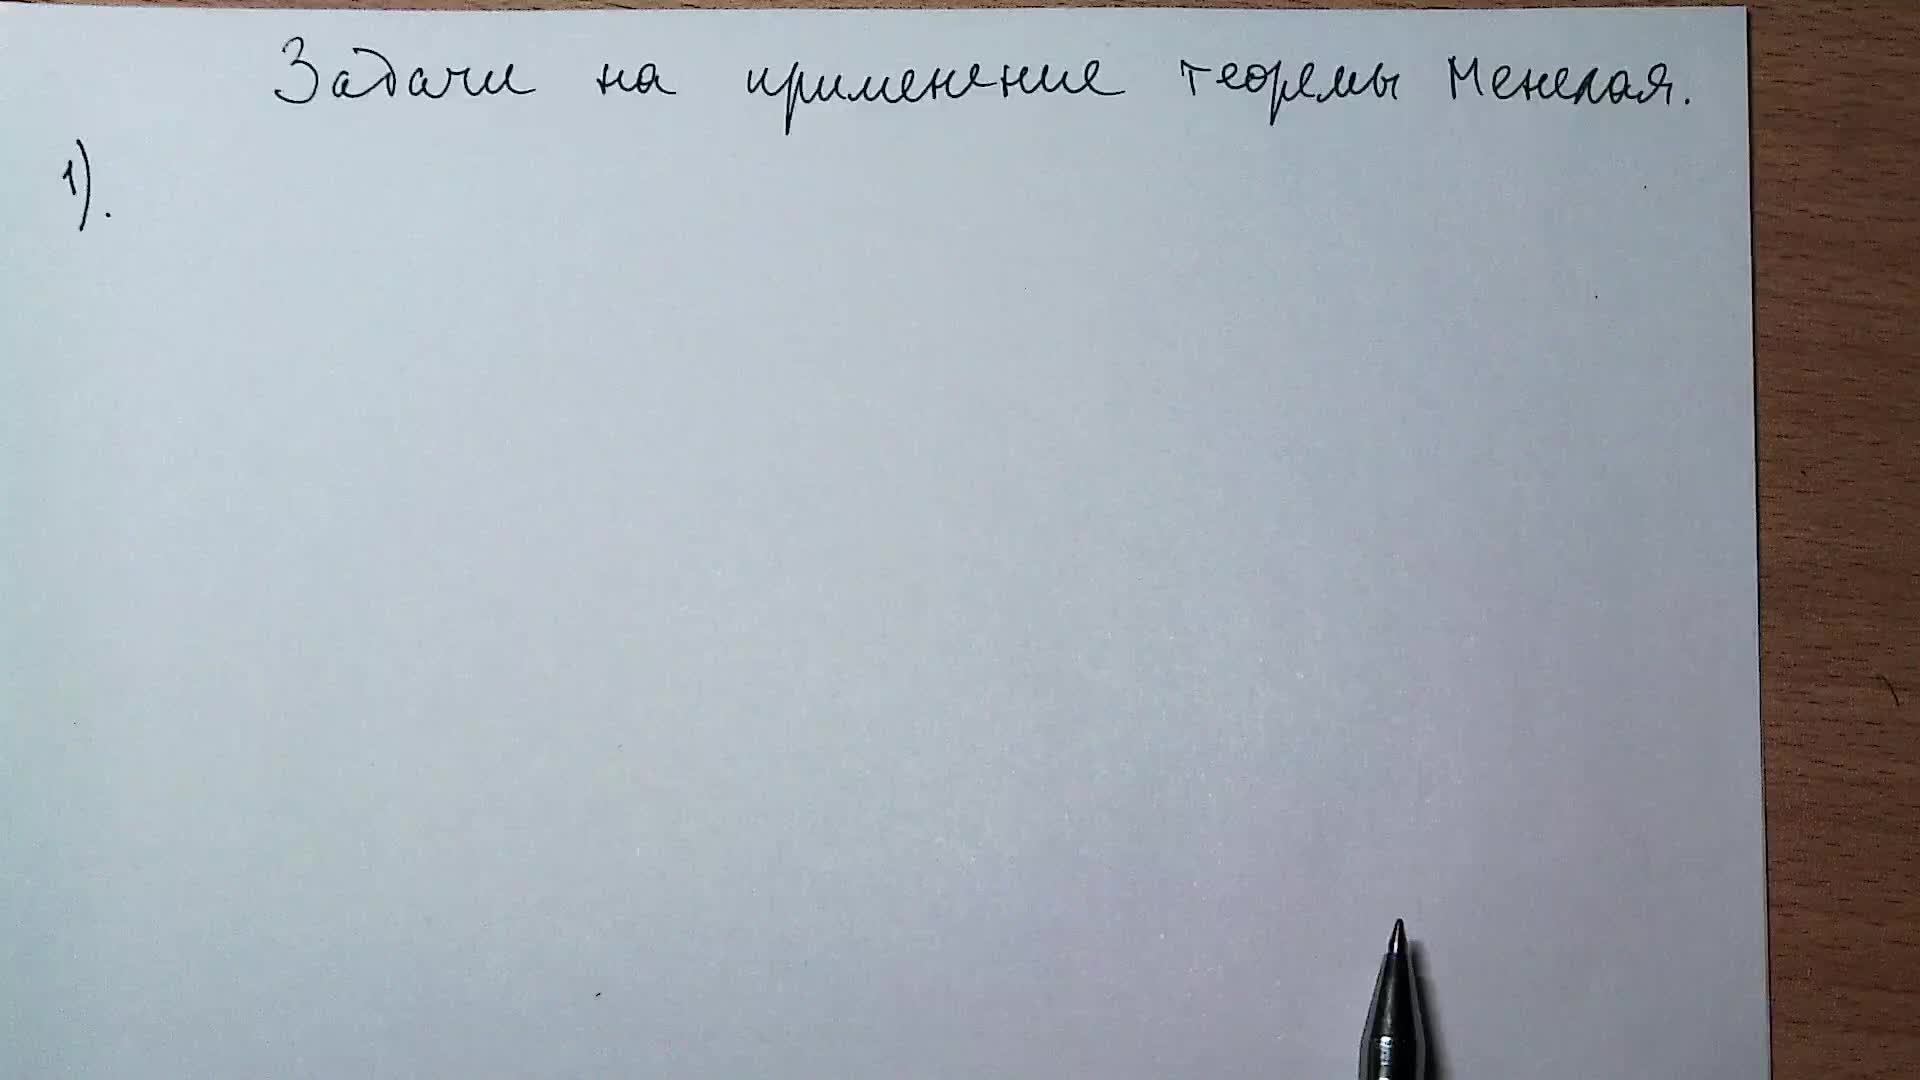 Задачи на применение теоремы Менелая.
1).